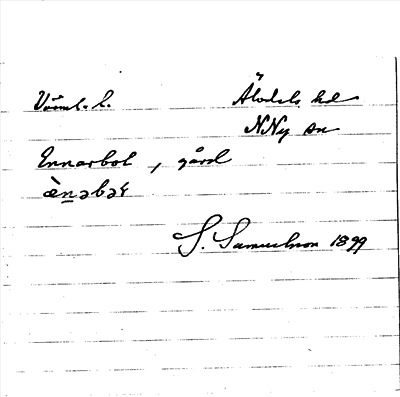 Värml. l. Älvdals hd
N Ny sn
Ennarbol, gård
ènəbəɫ
S. Samuelsson 1899